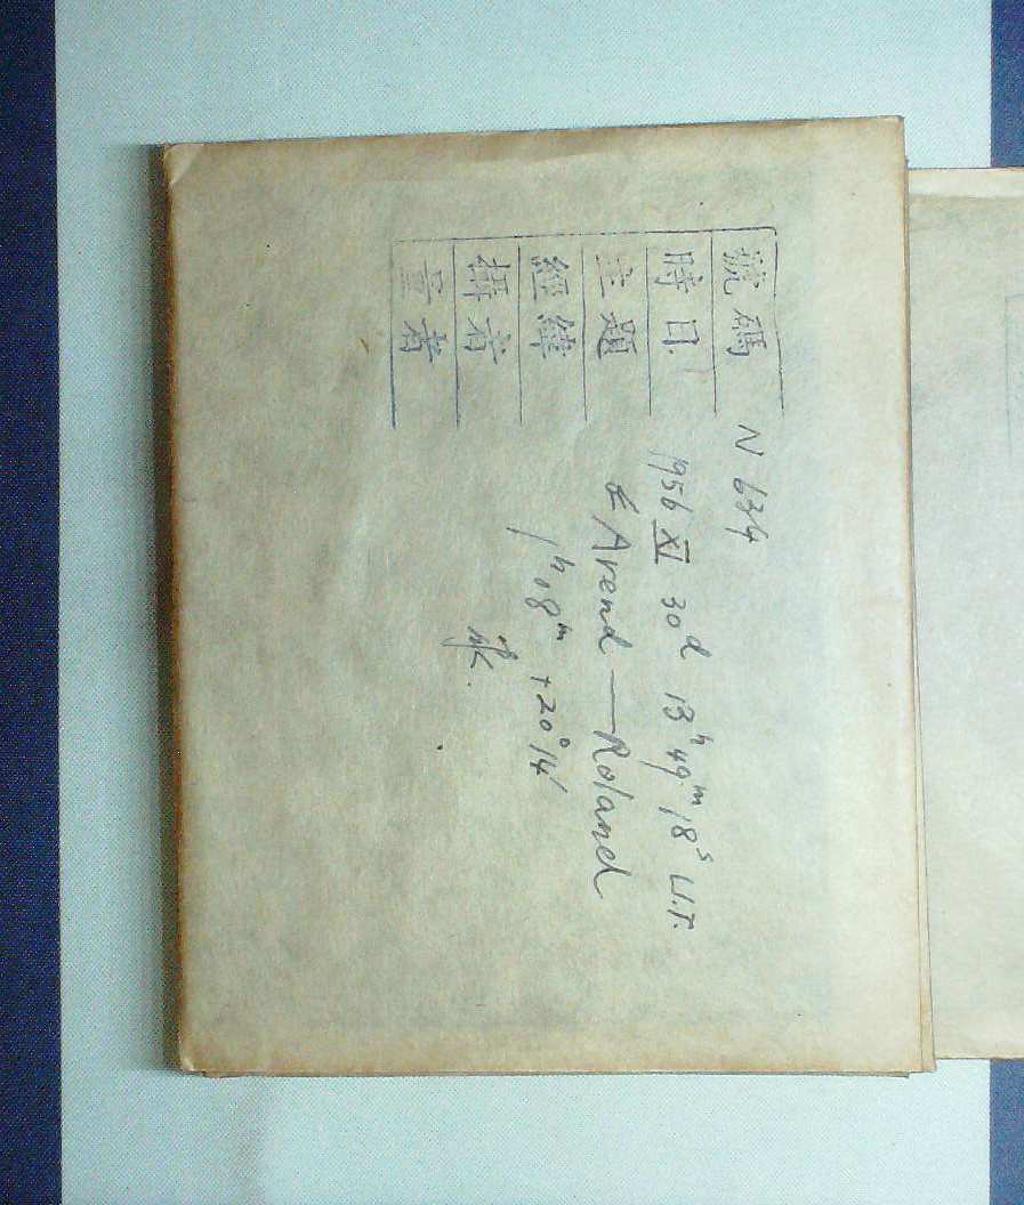 號碼 N 634
時日 1956 XI 30d 13h 49m 18s U.T.
主題 Arend — Roland
經緯 1h 08m +20° 14'
攝者
量者